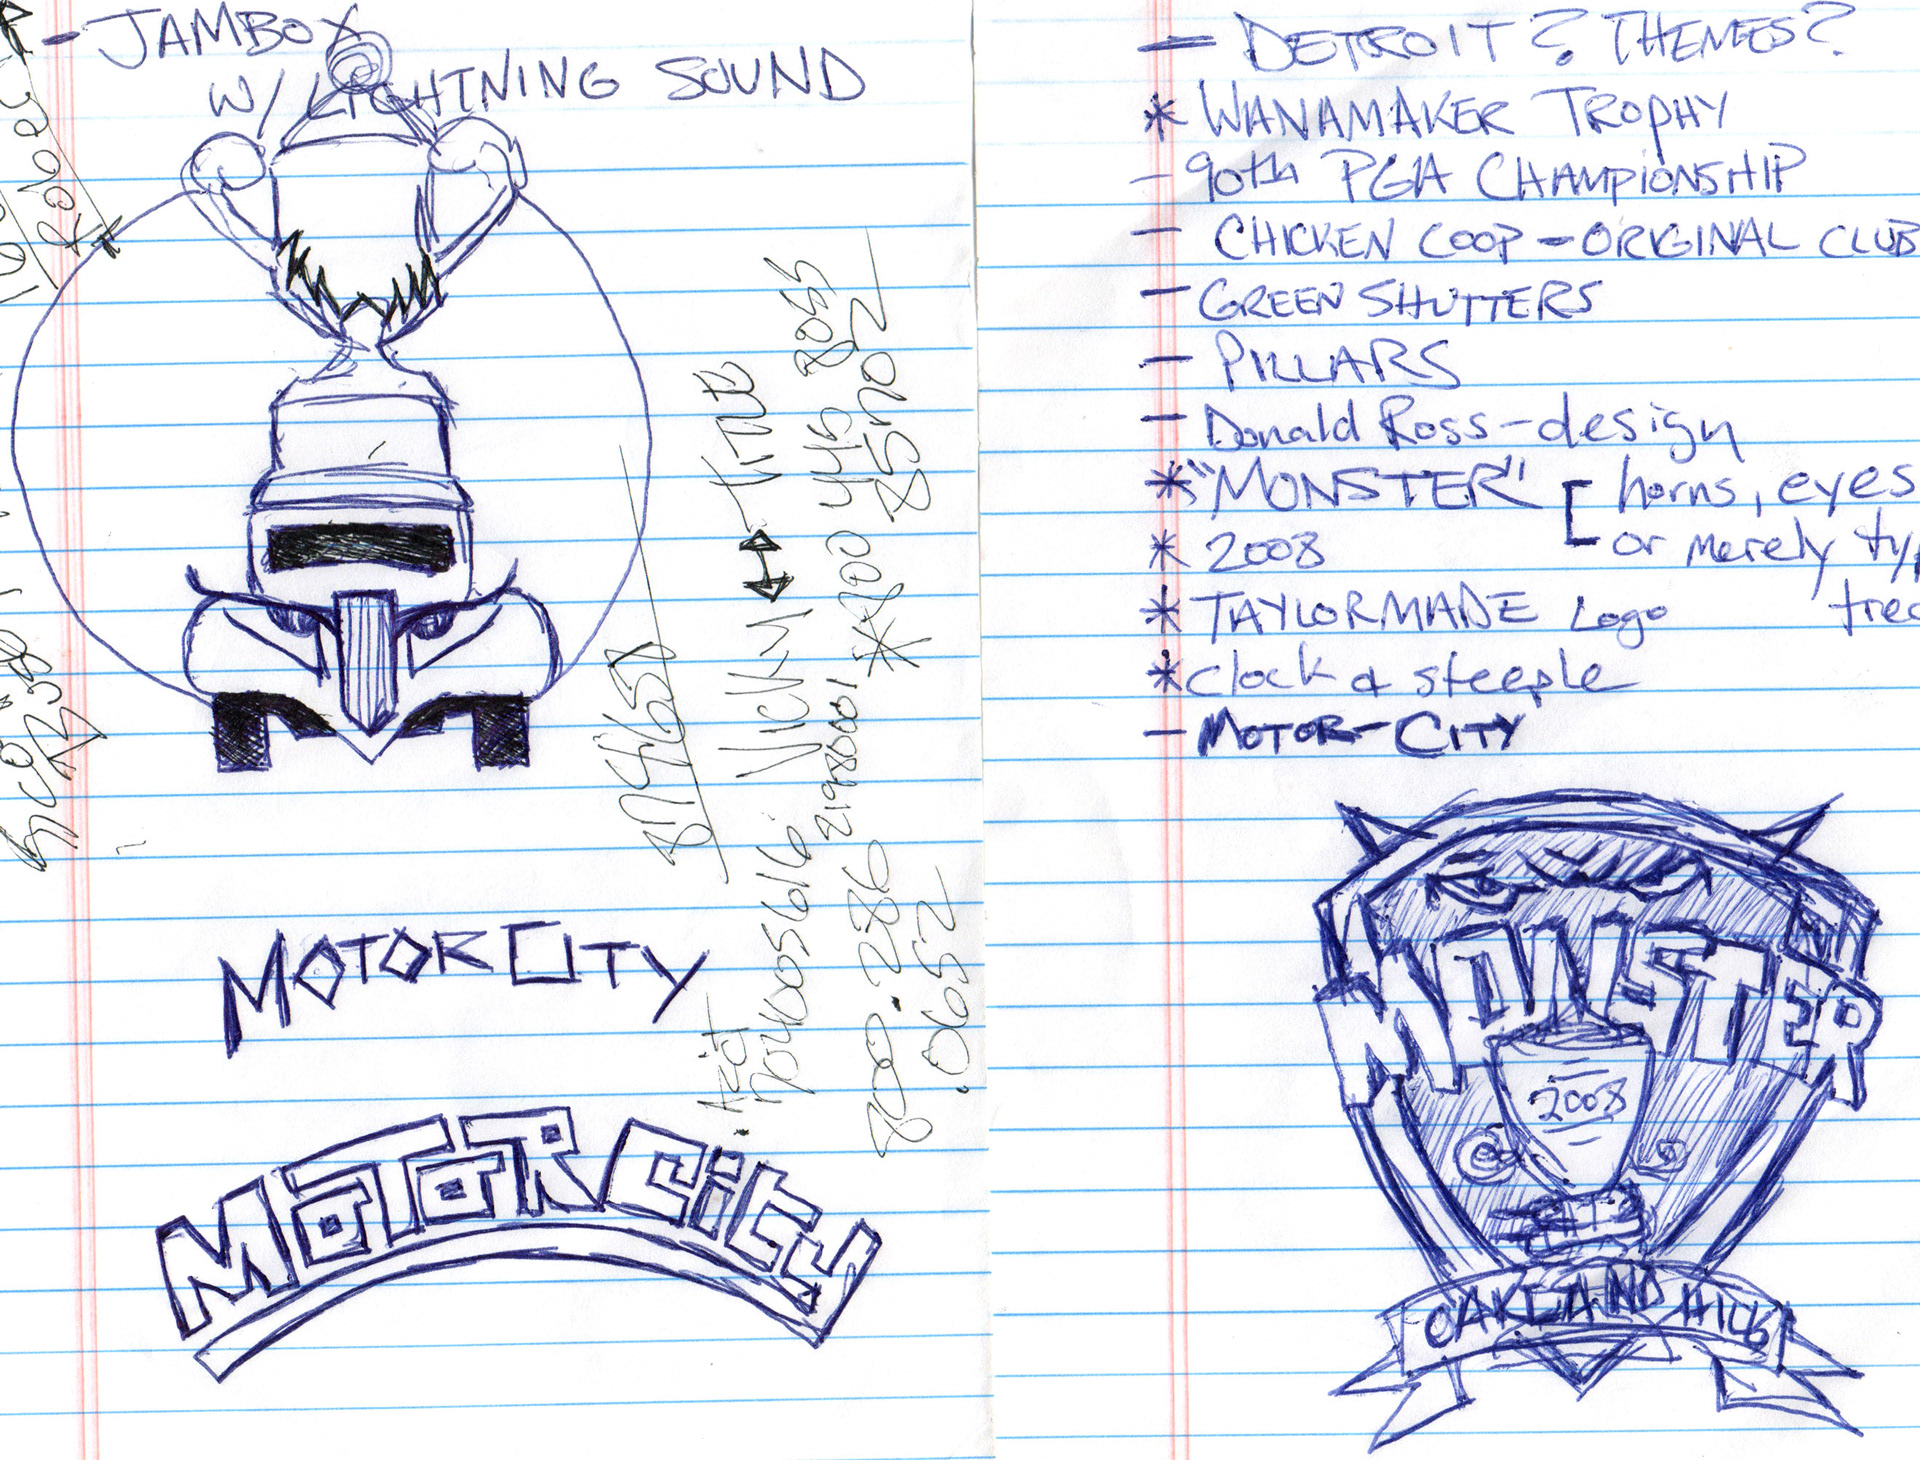 - JAMBOX
W/ LIGHTNING SOUND
Vicky ↔ Tine
445 8055
85702
21980001
87465
7040056616
800.286
.0652
MOTOR CITY
MOTOR CITY
- DETROIT? THEMES?
* WANAMAKER TROPHY
- 90th PGA CHAMPIONSHIP
- CHICKEN COOP - ORIGINAL CLUB
- GREEN SHUTTERS
- PILLARS
- Donald Ross - design
* "MONSTER" [ horns, eyes
* 2008 or merely typ
* TAYLORMADE Logo trea
* clock & steeple
- MOTOR-CITY
MONSTER
2008
OAKLAND HILLS